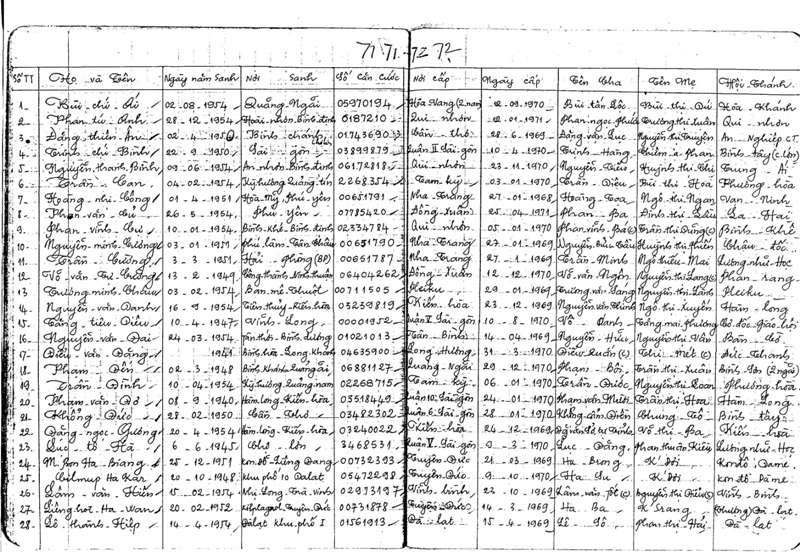 71 71-72 72
Số TT Họ và Tên Ngày năm Sanh Nơi Sanh Số Căn Cước Nơi cấp Ngày cấp Tên Cha Tên Mẹ Hội Thánh
1 Bùi chí Ái 02-08-1954 Quảng Ngãi 05970194 Hòa Vang 12-09-1970 Bùi tấn Lộc Bùi thị Dú Hòa Khánh
2 Phan tú Anh 28-12-1954 Hoài nhơn Bình định 0187210 Qui nhơn 12-01-1971 Phan ngọc Trương thị Xuân Qui nhơn
3 Đặng thiên Ân 02-4-1950 Bình chánh 01743690 Cần thơ 28-6-1969 Đặng văn Lục Nguyễn thị Truyện An Nghiệp CT
4 Trịnh chí Bình 22-9-1950 Sài gòn 03899879 Quận II Sài gòn 10-4-1970 Trịnh Hàng Phan Bình tây (c.lớn)
5 Nguyễn thanh Bình 09-06-1954 An nhơn Bình định 06172818 Qui nhơn 23-11-1970 Nguyễn Tửu Huỳnh thị Trung Ái
6 Trần Can 04-02-1954 Kỳ hương Quảng tín 2268354 Tam kỳ 03-01-1970 Trần Diệu Bùi thị Hoá Phường hòa
7 Hoàng nhi Công 01-4-1951 Hòa Mỹ Phú yên 00651791 Nha Trang 27-01-1968 Hoàng Toa Ngô thị Ngan Vạn Ninh
8 Phan văn Cừ 26-5-1954 Phú Yên 07785420 Đồng Xuân 25-04-1971 Phan Ba Đinh thị Liễu La Hai
9 Phan vĩnh Cư 10-01-1954 Bình Khê Bình định 02334784 Qui nhơn 05-01-1970 Phan vĩnh Bá Trần thị Dung Bình Khê
10 Nguyễn minh Cường 03-01-1951 phú lâm Tân Châu 00651790 Nha Trang 27-01-1969 Nguyễn Bửu Huỳnh thị Nhiên Châu đốc
11 Trần Cường 3-3-1951 Hải Phòng (BP) 00651787 Nha Trang 27-1-1969 Trần Minh Ngô thiếu Mai Lương như Học
12 Võ văn Trí Cường 13-2-1949 Công thành Ninh thuận 06404262 Đồng Xuân 12-12-1970 Võ văn Ngôn Nguyễn thị Lang Phan rang
13 Trương minh Châu 03-02-1954 Ban mê Thuột 00711505 Pleiku 29-01-1969 Trương văn Lang Nguyễn thị Lành Pleiku
14 Nguyễn văn Danh 16-9-1954 Tiên thủy Kiến hòa 03259819 Kiến hòa 23-12-1969 Nguyễn văn Ngô thị Xuyến Hàm long
15 Tăng tiêu Diêu 10-4-1947 Vĩnh Long 00001952 Quận V Sài gòn 10-8-1970 Võ Danh Tăng mai Phương
16 Nguyễn văn Đài 24-03-1954 Tân thới Bình dương 01021013 Tân Bình 14-04-1969 Nguyễn Hửu Nguyễn thị Vân Bàn Cờ
17 Điểu văn Đằng 1941 Bình hòa Long Khánh 04635900 Long Hương 31-3-1970 Điểu Luân (c) Thị Mết (c) Đức Thanh
18 Phạm Đến 02-3-1948 Bình Khánh Quảng ngãi 06881127 Quảng Ngãi 29-12-1970 Phạm Bội Trần thị Xuân Bình Sơn
19 Trần Định 10-04-1954 Kỳ hương Quảng nam 02268715 Tam kỳ 06-01-1970 Trần Dước Nguyễn thị Loan Phường hòa
20 Phạm văn Đô 08-9-1940 Hàm long Kiến hòa 03518449 Quận 10 Sài gòn 24-01-1970 Phạm văn Mười Trần thị Hoa Hàm Long
21 Khổng Đức 28-02-1950 Cần Thơ 03482302 Quận 6 Sài gòn 28-01-1970 Khổng Cẩm Diên Chung Tố Bình tây
22 Đặng ngọc Gương 20-4-1954 Hàm long Kiến hòa 03240022 Kiến hòa 24-12-1969 Võ thị Ba Kiến hòa
23 Lục tô Hà 6-6-1945 Chợ lớn 3468531 Quận V Sài gòn 9-3-1970 Lục Đằng Phan thuần Kiều Lương như Học
24 M. Bon Ha Biang 25-12-1951 Kon đố Liêng Đang 00732393 Tuyên Đức 21-03-1969 Ha Brong K' Dơi Konđô Đame
25 Cilmup Ha Kar 20-10-1948 Khu phố 10 Dalat 05472298 Tuyên Đức 9-10-1970 Ha Su K' Dơi Kon đô Đame
26 Lâm văn Hiển 15-02-1954 Nhị Long Trà vinh 02973197 Vĩnh bình 23-10-1969 Lâm văn Tốt (c) Nguyễn thị Điều (c) Vĩnh Bình
27 Liêng hot Ha Wan 20-02-1952 Tuyên Đức 00731878 Tuyên Đức 14-3-1969 Ha Ba K Srang (thượng) Đà lạt
28 Lê thành Hiệp 14-4-1954 Đàlạt Khu phố I 01561913 Đà lạt 15-4-1969 Lê Sô Phan thị Hai Đà lạt